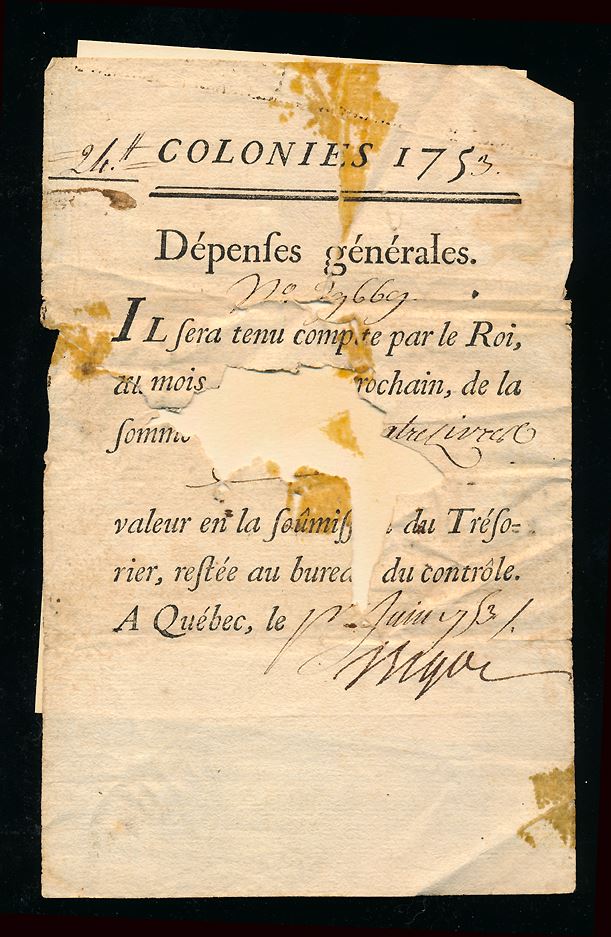 24.tt COLONIES 1753.
Dépenſes générales.
No
IL ſera tenu compte par le Roi,
au mois rochain, de la
ſomme atre Livres
valeur en la ſoûmiſſ du Tréſo-
rier, reſtée au bureau du contrôle.
A Québec, le 1er Juin 1753.
Bigot